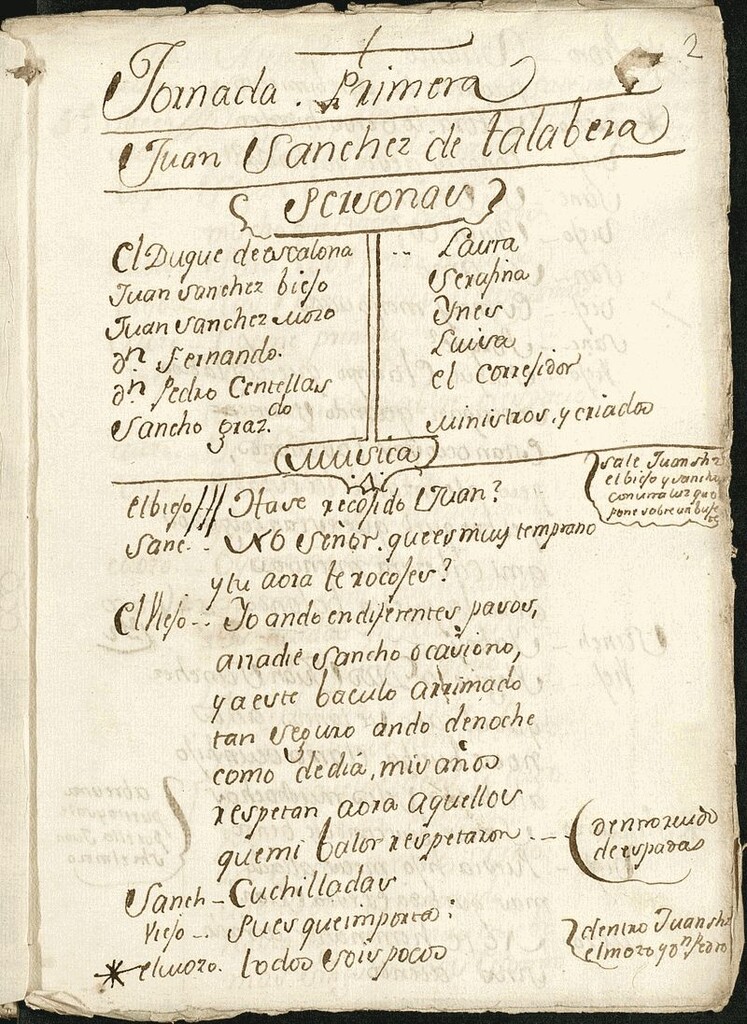 2
Jornada. Primera
Juan Sanchez de talabera
Personas
El Duque de escalona
Juan Sanchez biejo
Juan Sanchez mozo
dn Fernando.
dn Pedro Centellas
Sancho graz.do
Laura
Serafina
Ynes
Luisa
el Correjidor
Ministros, y criados
Musica
sale Juan shz
el biejo y sancho
con una luz que
pone sobre un bufe
te
el biejo Hase recojido Juan?
Sanc. No Señor, que es muy temprano
y tu aora te recojes?
El Viejo Yo ando en diferentes pasos,
a nadie Sancho ocasiono,
y a este baculo arrimado
tan seguro ando de noche
como de dia, mis años
respetan aora aquellos
que mi balor respetaron.
dentro ruido
de espadas
Sanch Cuchilladas
Viejo Pues que importa?
dentro Juan shz
el mozo y Dn Pedro
el mozo. todos sois pocos